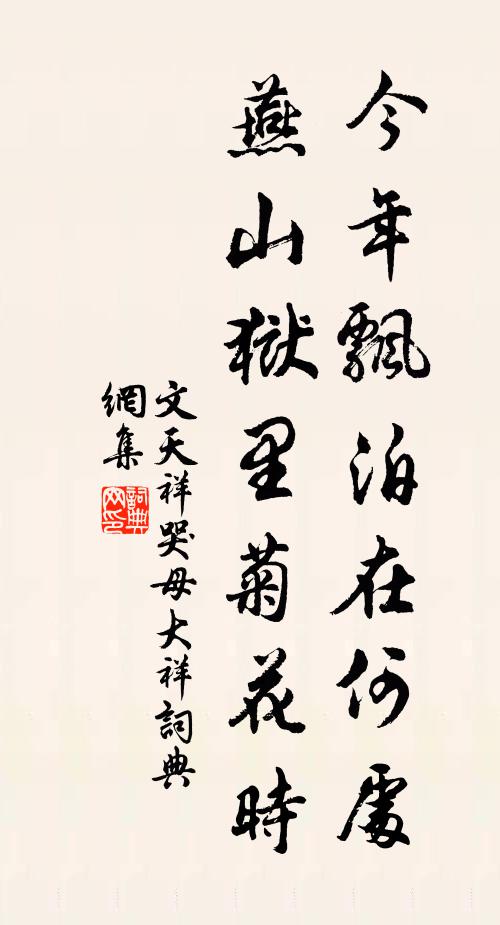 今年飄泊在何處
燕山獄里菊花時
文天祥哭母大祥詞典
網集
詞典網印